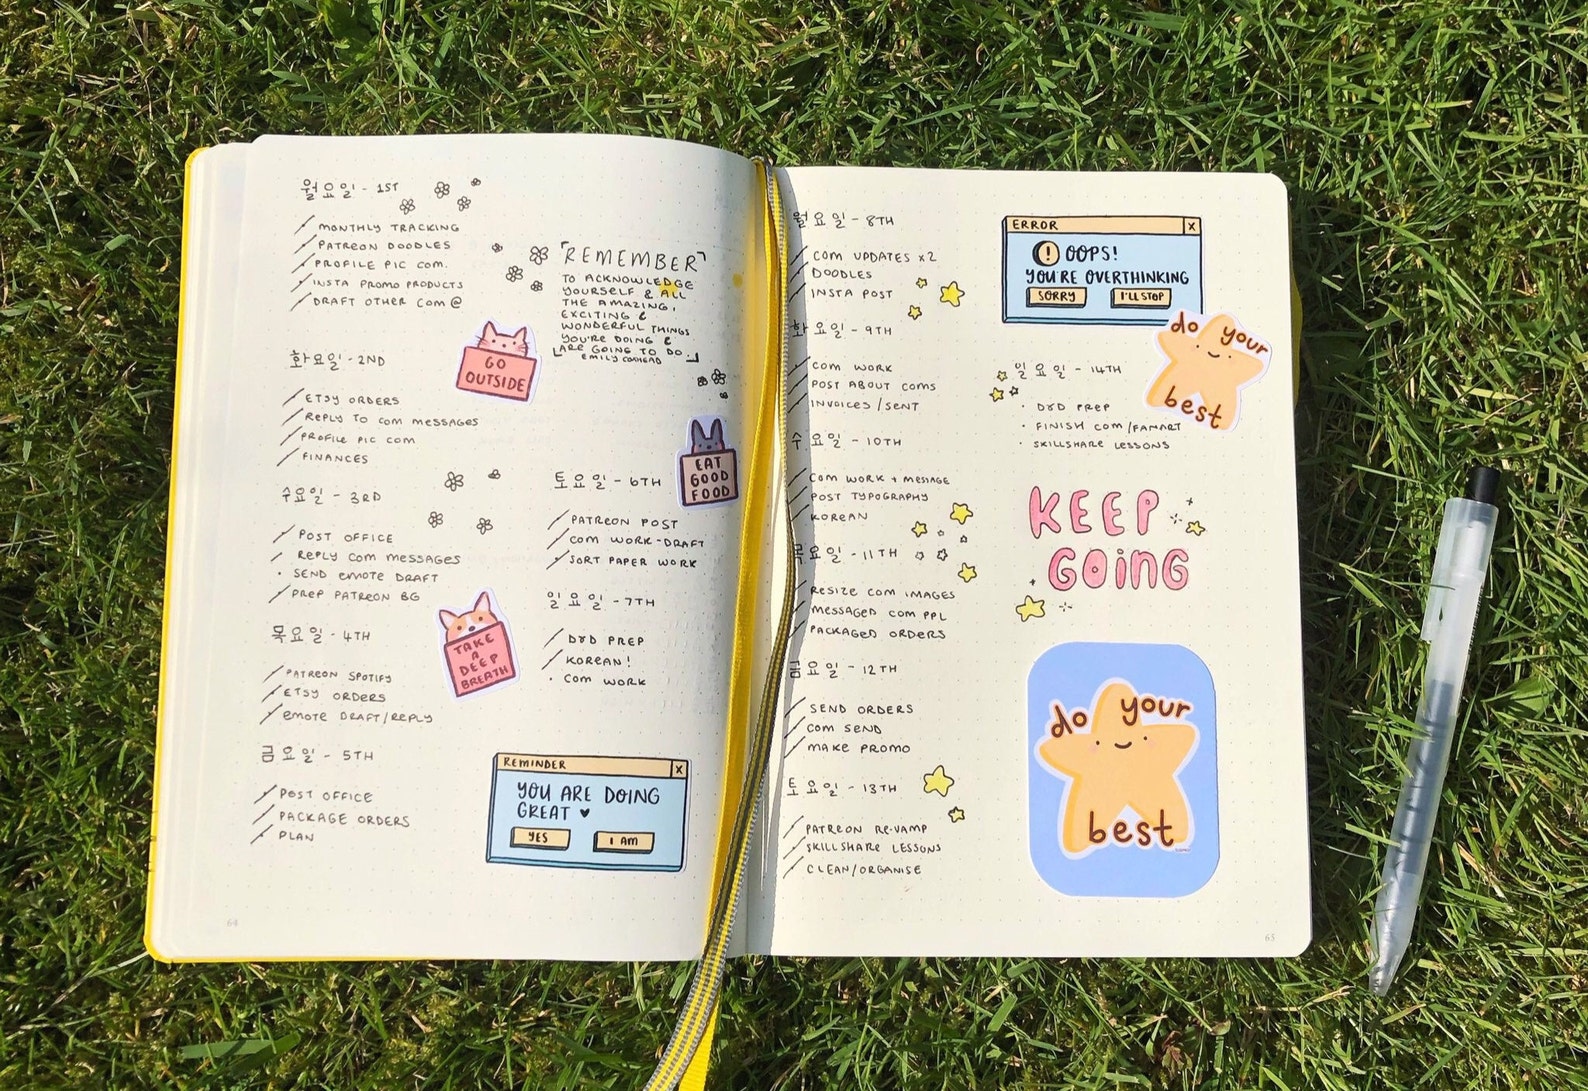 월요일 - 1ST
MONTHLY TRACKING
PATREON DOODLES
PROFILE PIC COM.
INSTA PROMO PRODUCTS
DRAFT OTHER COM @
「REMEMBER」
TO ACKNOWLEDGE
YOURSELF & ALL
THE AMAZING,
EXCITING &
WONDERFUL THINGS
YOU'RE DOING &
ARE GOING TO DO.
EMILY COXHEAD
GO
OUTSIDE
화요일 - 2ND
ETSY ORDERS
REPLY TO COM MESSAGES
PROFILE PIC COM
FINANCES
수요일 - 3RD
POST OFFICE
REPLY COM MESSAGES
SEND EMOTE DRAFT
PREP PATREON BG
TAKE
A
DEEP
BREATH
목요일 - 4TH
PATREON SPOTIFY
ETSY ORDERS
EMOTE DRAFT/REPLY
금요일 - 5TH
POST OFFICE
PACKAGE ORDERS
PLAN
EAT
GOOD
FOOD
토요일 - 6TH
PATREON POST
COM WORK-DRAFT
SORT PAPER WORK
일요일 - 7TH
D&D PREP
KOREAN!
COM WORK
REMINDER X
YOU ARE DOING
GREAT ♥
YES I AM
64
월요일 - 8TH
COM UPDATES x2
DOODLES
INSTA POST
화요일 - 9TH
COM WORK
POST ABOUT COMS
INVOICES/SENT
수요일 - 10TH
COM WORK + MESSAGE
POST TYPOGRAPHY
KOREAN
목요일 - 11TH
RESIZE COM IMAGES
MESSAGED COM PPL
PACKAGED ORDERS
금요일 - 12TH
SEND ORDERS
COM SEND
MAKE PROMO
토요일 - 13TH
PATREON RE-VAMP
SKILLSHARE LESSONS
CLEAN/ORGANISE
ERROR X
! OOPS!
YOU'RE OVERTHINKING
SORRY I'LL STOP
do your
best
일요일 - 14TH
D&D PREP
FINISH COM/FANART
SKILLSHARE LESSONS
KEEP
GOING
do your
best
65